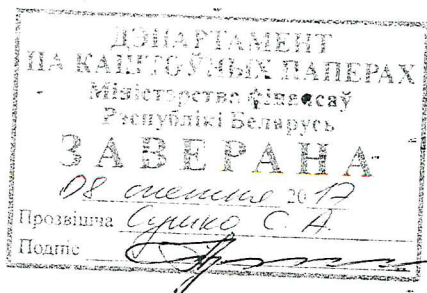 ДЭПАРТАМЕНТ
ПА КАШТОЎНЫХ ПАПЕРАХ
Міністэрства фінансаў
Рэспублікі Беларусь
ЗАВЕРАНА
08 20 17
Прозвішча Сушко С. А.
Подпіс